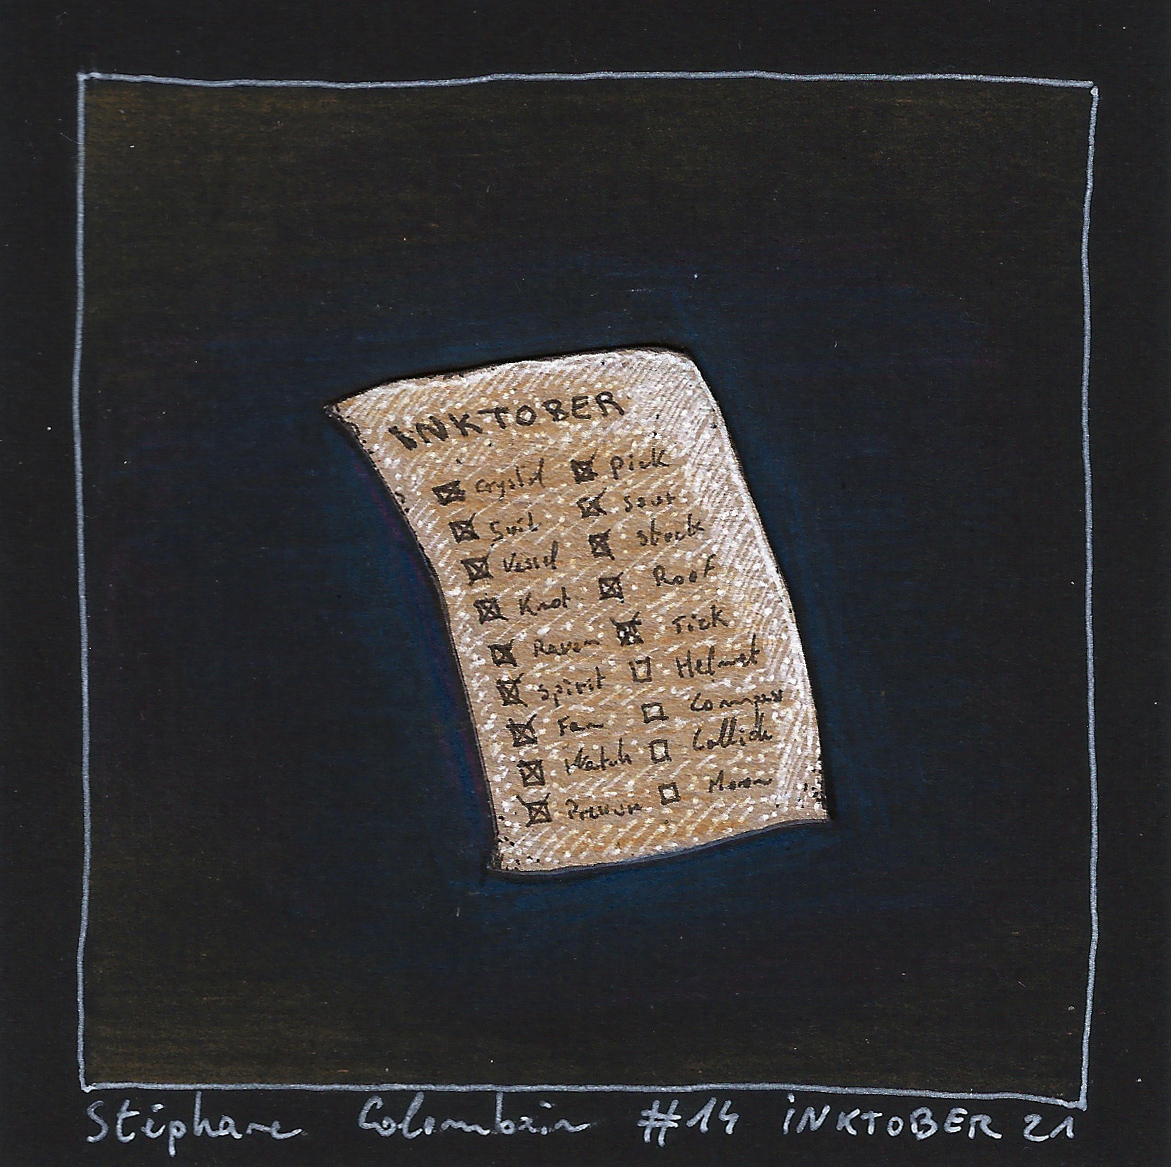 INKTOBER
Crystal
Suit
Vessel
Knot
Raven
Spirit
Fan
Watch
Pressure
Pick
Sour
Stuck
Roof
Tick
Helmet
Compass
Collide
Moon
Stéphane Colombain #14 INKTOBER 21